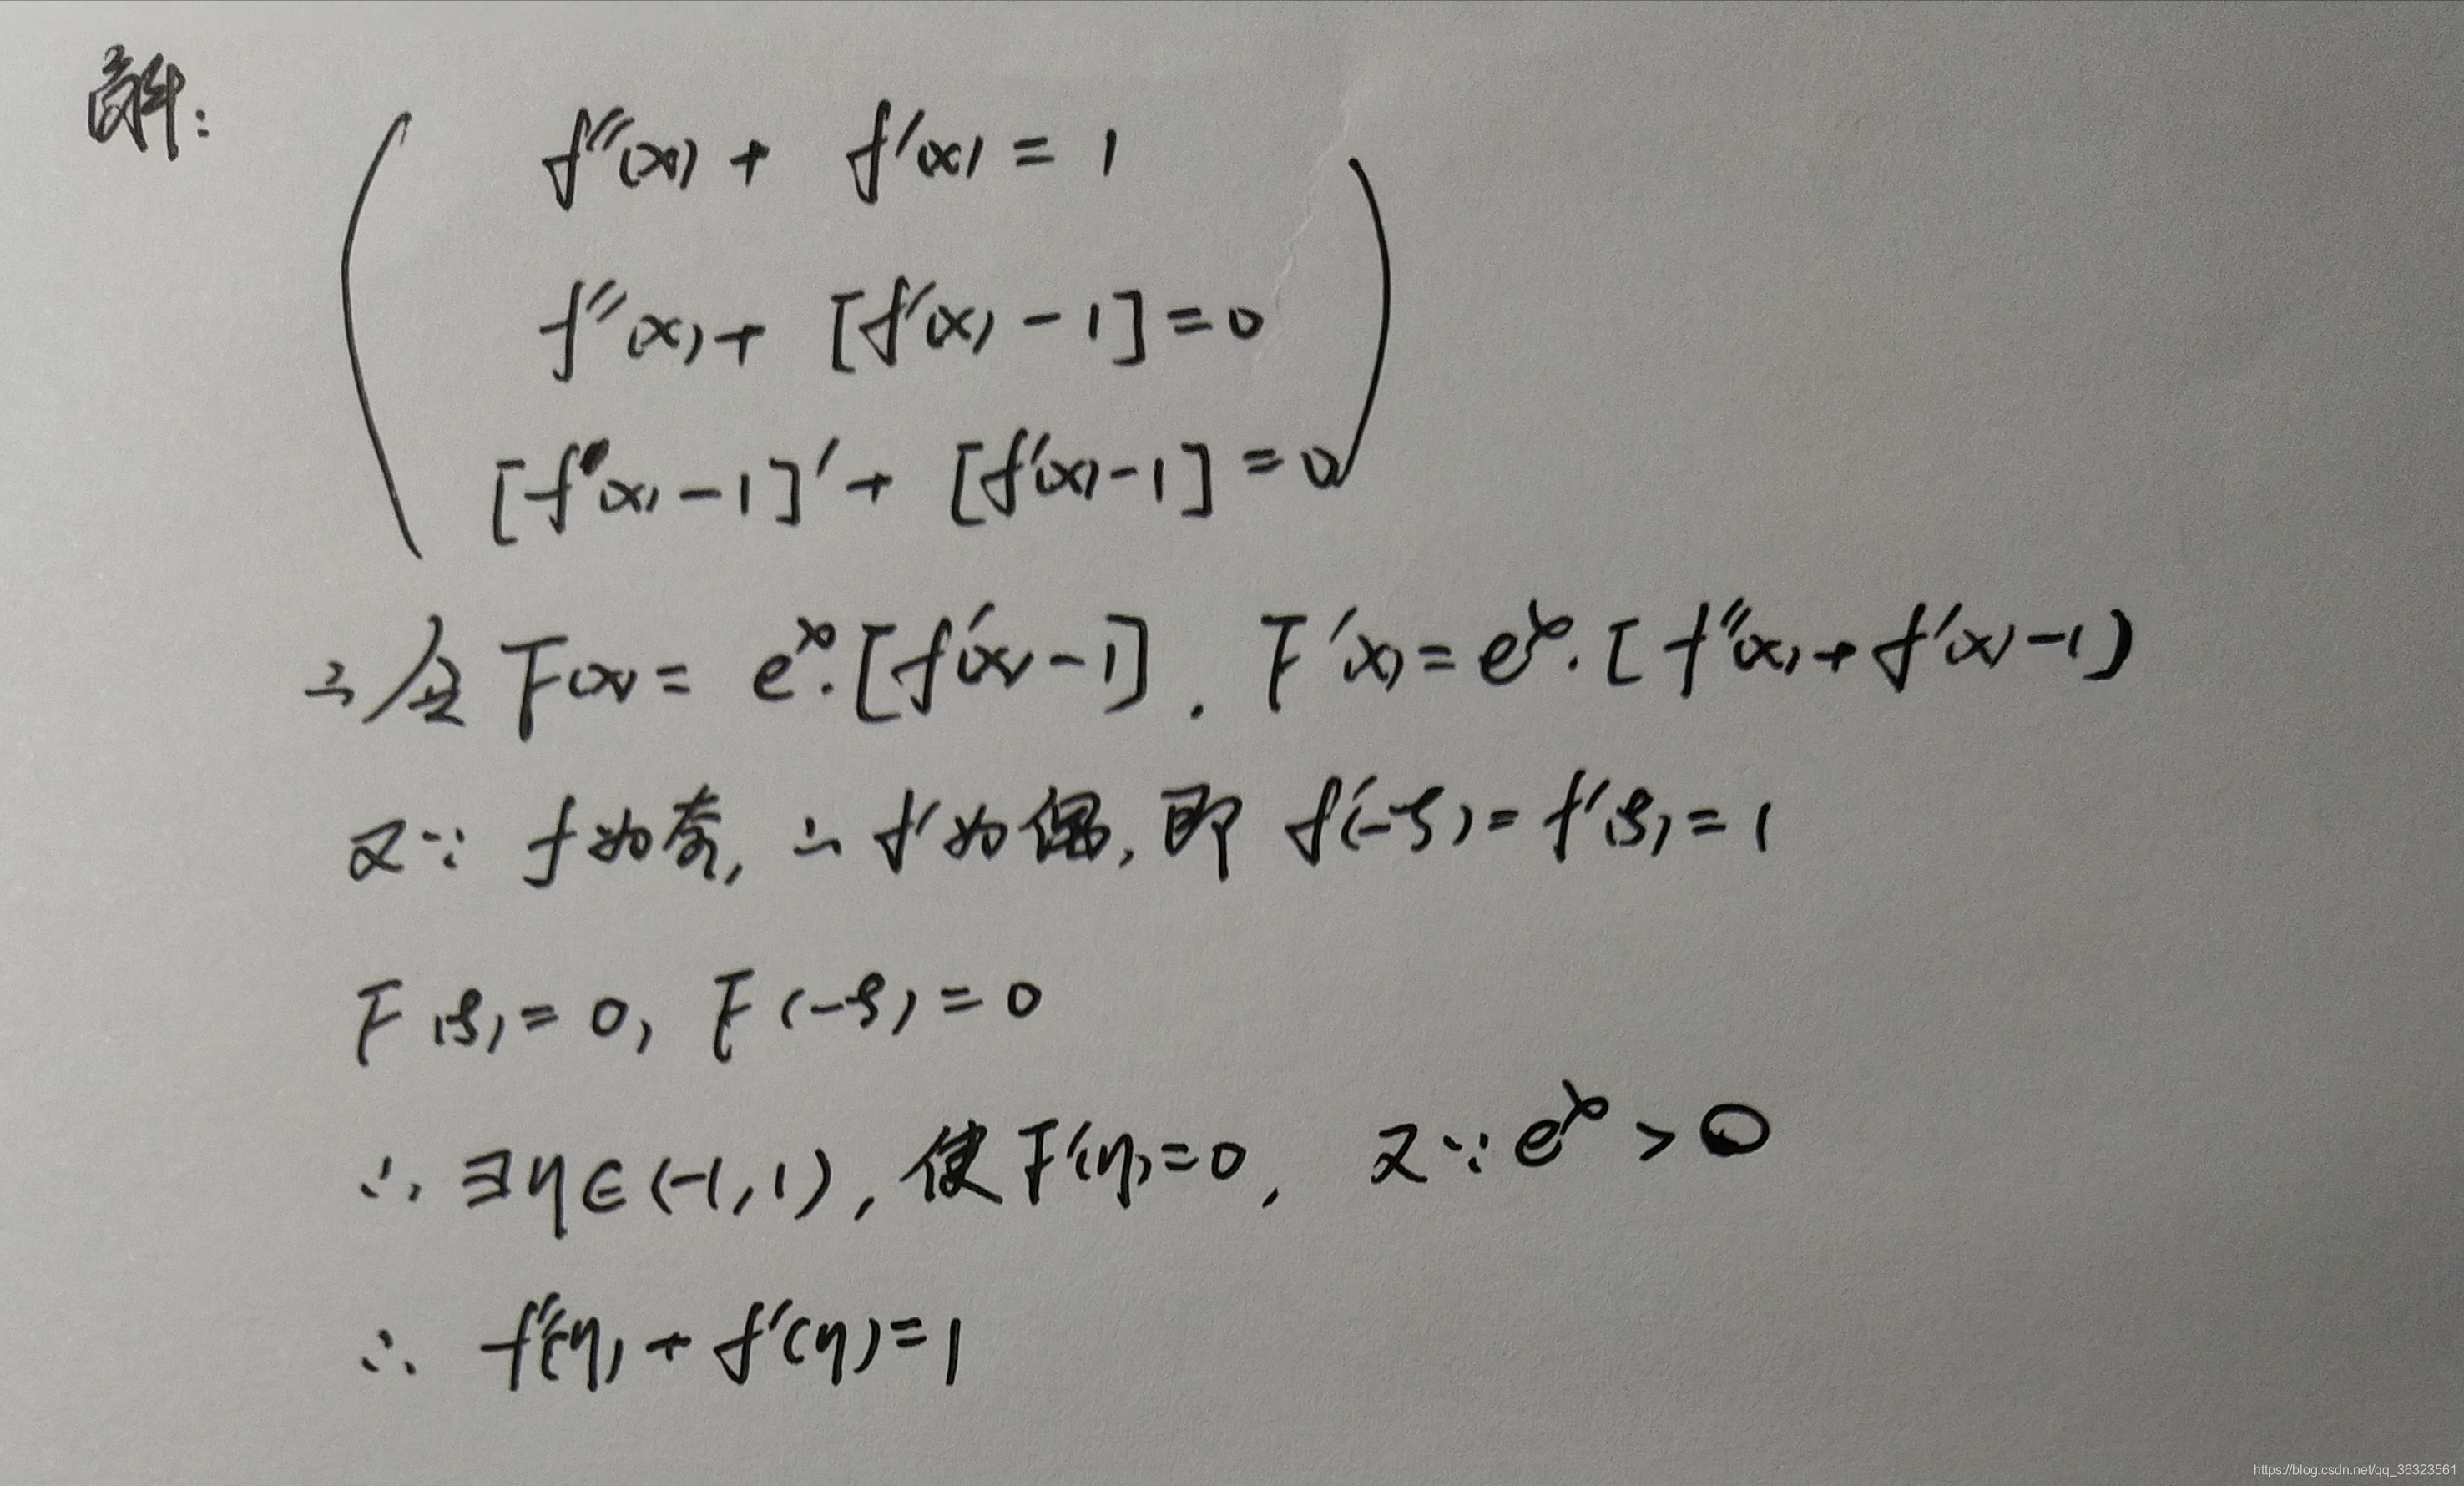 解:
f''(x) + f'(x) = 1
f''(x) + [f'(x) - 1] = 0
[f'(x) - 1]' + [f'(x) - 1] = 0
∴ 令 F(x) = e^x·[f'(x) - 1]. F'(x) = e^x·[f''(x) + f'(x) - 1]
又∵ f为奇, ∴ f'为偶, 即 f'(-ξ) = f'(ξ) = 1
F(ξ) = 0, F(-ξ) = 0
∴ ∃η∈(-1, 1), 使F'(η) = 0, 又∵ e^x > 0
∴ f''(η) + f'(η) = 1
https://blog.csdn.net/qq_36323561